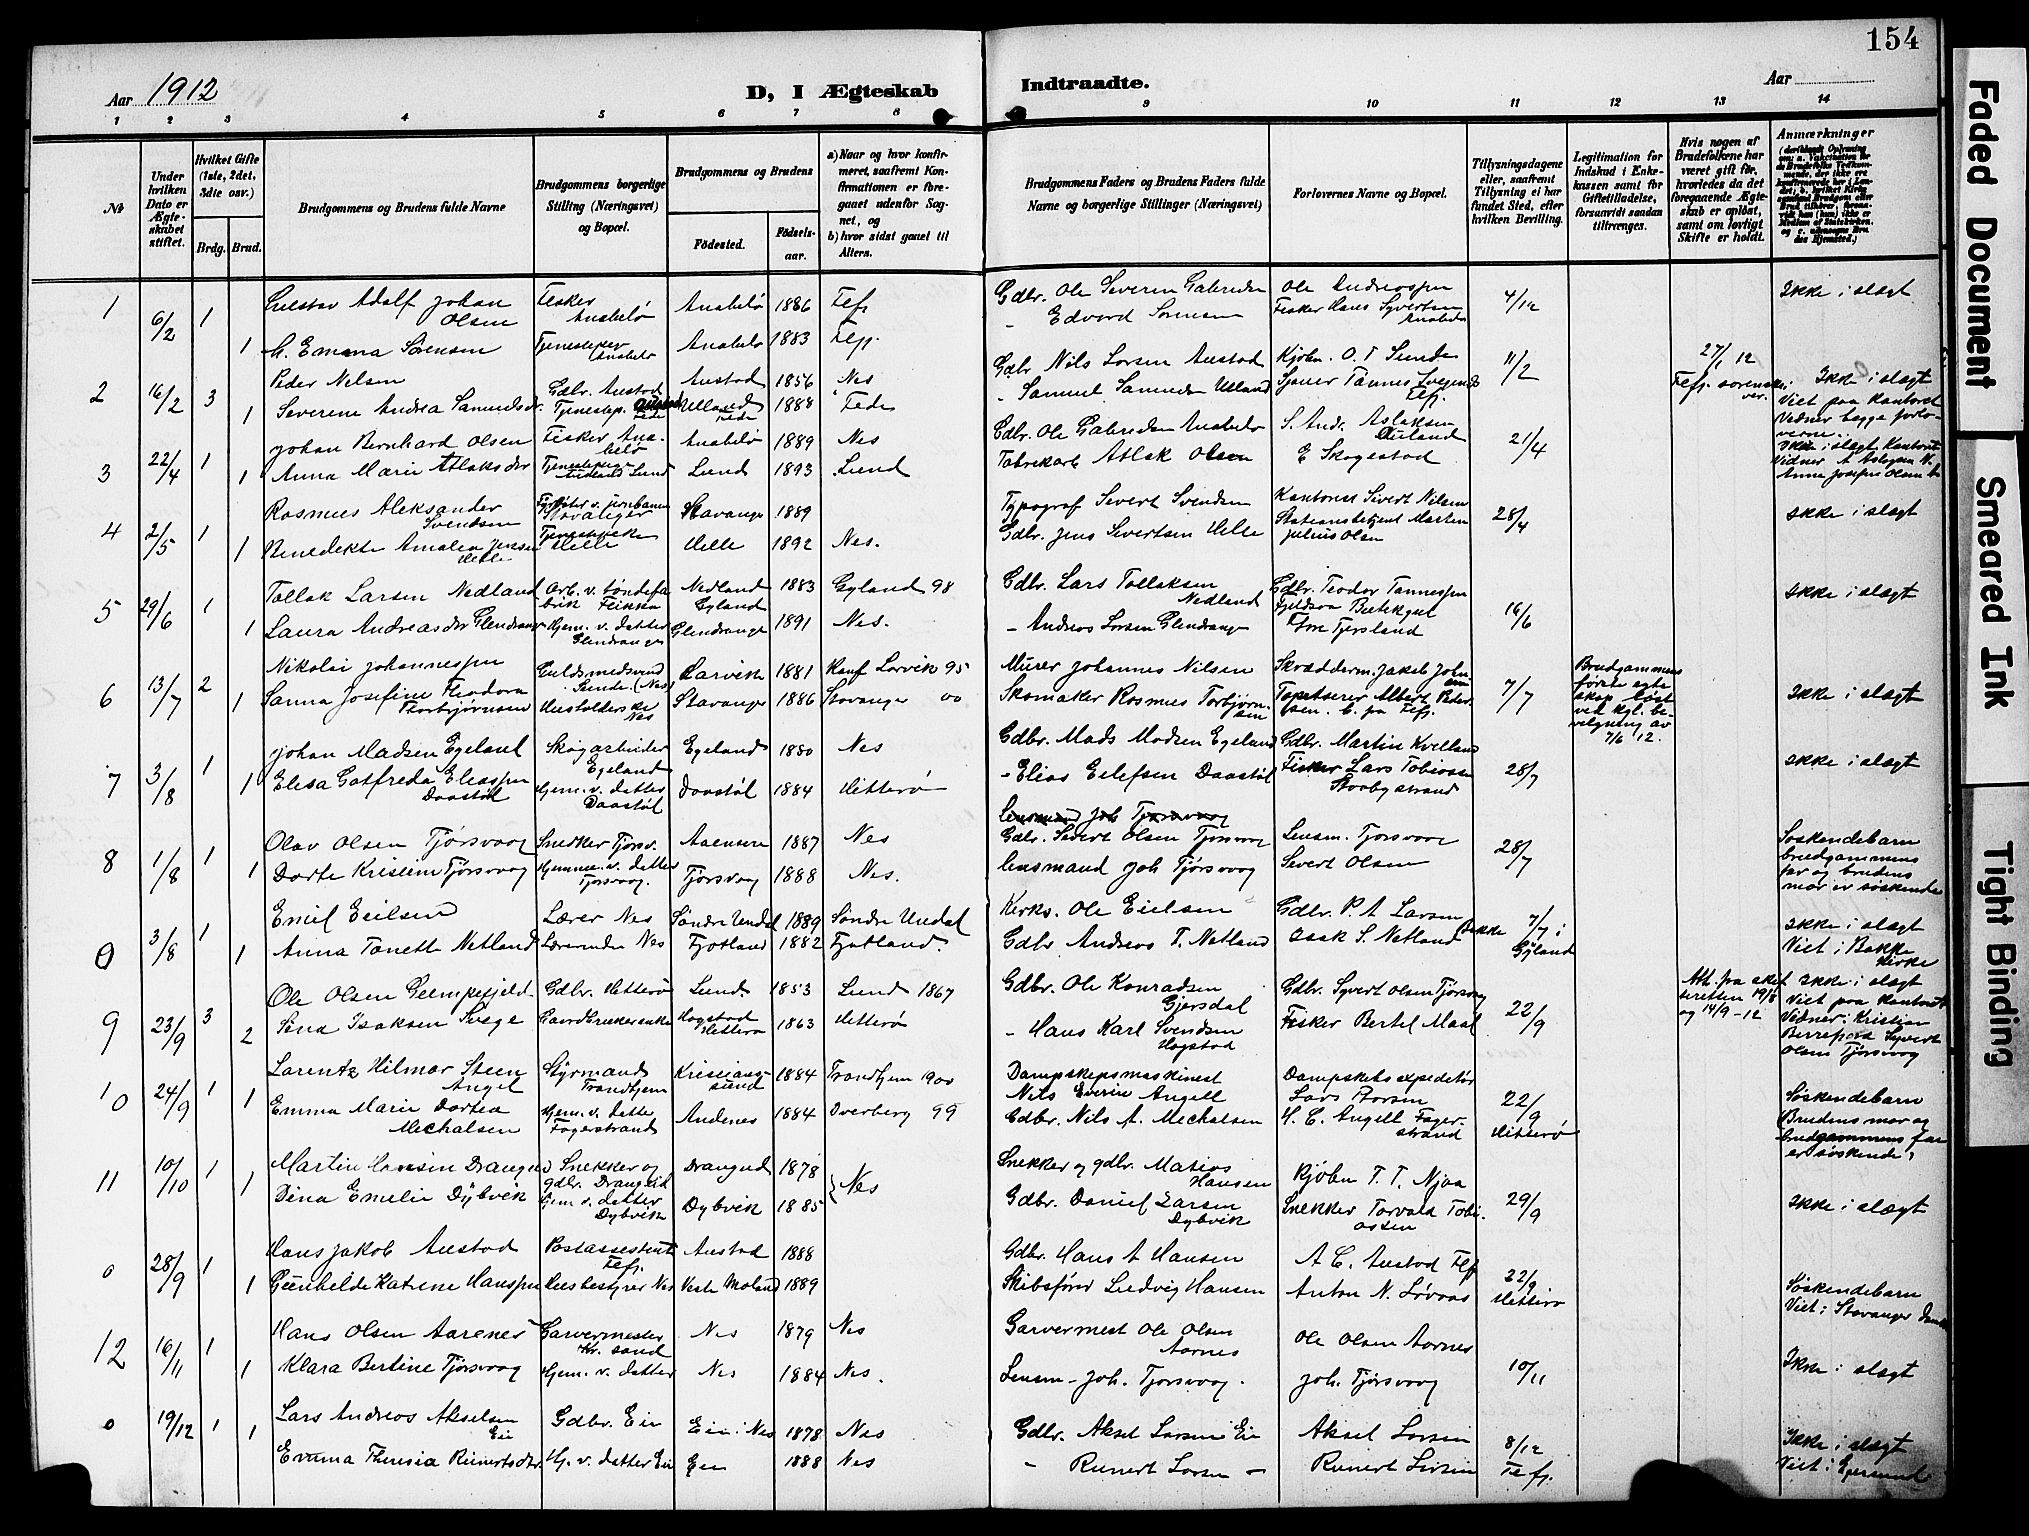 154
Aar 1912
D, I Ægteskab Indtraadte.
Aar
1 2 3 4 5 6 7 8 9 10 11 12 13 14
№
Under hvilken Dato er Ægteskabet stiftet.
Hvilket Gifte (1ste, 2det, 3die osv.)
Brdg. Brud.
Brudgommens og Brudens fulde Navne
Brudgommens borgerlige Stilling (Næringsvei) og Bopæl.
Brudgommens og Brudens
Fødested.
Fødselsaar.
a) Naar og hvor konfirmeret, saafremt Konfirmationen er foregaaet udenfor Sognet, og
b) hvor sidst gaaet til Alters.
Brudgommens Faders og Brudens Faders fulde Navne og borgerlige Stillinger (Næringsvei)
Forlovernes Navne og Bopæl.
Tillysningsdagene eller, saafremt Tillysning ei har fundet Sted, efter hvilken Bevilling.
Legitimation for Indskud i Enkekassen samt for Giftetilladelse, forsaavidt saadan tiltrænges.
Hvis nogen af Brudefolkene har været gift før, hvorledes da det foregaaende Ægteskab er opløst, samt om lovligt Skifte er holdt.
Anmærkninger
1 6/2 1 Gustav Adolf Johan Olsen Fisker Anabelø Anabelø 1886 Fefj. Gdbr. Ole Severin Gabrielsen Ole Andreassen 4/12 Ikke i slægt
1 G. Emma Sørensen Anabelø Anabelø 1883 Fefj. - Edvard Sørensen Fisker Hans Syvertsen Anabelø
2 16/2 3 Peder Nilsen Gdbr. Austad Austad 1856 Nes Gdbr Nils Larsen Austad Kjøbm. O. T Sunde 11/2 27/1 12 Ikke i slægt
1 Severine Andrea Samuelsdr. Tjenestep. Uelland Fede 1888 Fede - Samuel Samuelsen Uelland Fefj. Viet paa kontoret Vidner begge forloverne.
3 22/4 1 Johan Bernhard Olsen Fisker Anabelø Anabelø 1889 Nes Gdbr. Ole Gabrielsen Anabelø S. Andr. Aslaksen 21/4 Ikke i slægt Kontoret
1 Anna Marie Atlaksdr Lund 1893 Lund Fabrikarb Atlak Olsen E Skogestad Vidner A Aslagsen
4 2/5 1 Rasmus Aleksander Svendsen Stavanger Stavanger 1889 Typograf Sivert Svendsen Kontorist Sivert Nilsen 28/4 Ikke i slægt
1 Benedikte Amalia Jensen Helle Helle Helle 1892 Nes. Gdbr. Jens Sivertsen Helle Stationsbetjent Martin Julius Olsen
5 29/6 1 Tollak Larsen Nedland Arb. v. tøndefabrik Flikka Nedland Gyland 1883 Gyland 98 Gdbr. Lars Tollaksen Nedland Gdbr. Teodor Tønnessen 16/6 Ikke i slægt
1 Laura Andreasdr Glendrange Hjem. v. datter Glendrange Glendrange 1891 Nes. - Andreas Larsen Glendrange Tore Tjersland
6 13/7 2 Nikolai Johannessen Guldsmedsvend Sunde (Nes) Larvik 1881 Konf Larvik 95 Murer Johannes Nilsen Skrædderm. Jakob Johnsen 7/7 Brudgommens første egteskap løst ved kgl. bevilgning av 7/6 12. Ikke i slægt
1 Sanna Josefine Teodora Thorbjørnsen Husholderske Nes Stavanger 1886 Stavanger 00 Skomaker Rasmus Torbjørnsen Tapetserer Albert Pedersen
7 3/8 1 Johan Madsen Egeland Skogarbeider Egeland Egeland 1880 Nes Gdbr. Mads Madsen Egeland Gdbr. Martin Kvelland 28/7 Ikke i slægt
1 Elisa Gotfreda Eliassen Daastøl Hjem. v. datter Daastøl Daastøl 1884 Hitterø - Elias Eilefsen Daastøl Fisker Lars Tobiassen
Lensmand Joh Tjørsvaag
8 1/8 1 Olav Olsen Tjørsvaag Snedker Tjørsv. Aaensere 1887 Nes Gdbr. Sivert Olsen Tjørsvaag Lensm. Tjørsvaag 28/7 Søskendebarn brudgommens far og brudens mor er søskende
1 Dorte Kristine Tjørsvaag Hjemme v. datter Tjørsvaag. Tjørsvaag 1888 Nes. lensmand Joh Tjørsvaag Sivert Olsen
0 3/8 1 Emil Eielsen Lærer Nes Søndre Undal 1889 Søndre Undal Kirks. Ole Eielsen Gdbr. P. A Larsen 7/7 i Gyland Ikke i slægt
1 Anna Tonette Netland Lærerinde Nes Fjotland 1882 Fjotland. Gdbr Andreas T. Netland Isak S. Netland Bakke Viet i Bakke kirke
9 23/9 3 Ole Olsen Gumpefjeld Gdbr. Hitterø Lund. 1853 Lund 1867 Gdbr. Ole Konradsen Gjersdal Gdbr. Syvert Olsen Tjørsvaag 22/9 Att. fra skifteretten 19/8 og 14/9-12 Ikke i slægt
2 Sina Isaksen Svege Gaardbrukerenke Hogstad Hitterø 1863 Hitterø - Hans Karl Svendsen Hogstad Fisker Bertel Maal Viet paa kontoret Vidner: Kristian Syvert Olsen Tjørsvaag
10 24/9 1 Larentz Hilmar Steen Angel Styrmand Trondhjem Kristiansund 1884 Trondhjem 1900 Dampskipsmaskinist Nils Everin Angell Dampskibsexpeditør Lars Larsen 22/9 Hitterø Søskendebarn
1 Emma Marie Dortea Michalsen Hjem. v. datter Fagerstrand Andenes 1884 Dverberg 99 Gdbr. Nils A. Michalsen H. C. Angell Fagerstrand Brudens mor og brudgommens far er søskende.
11 10/10 1 Martin Hansen Drangeid Snekker og gdbr. Drangeid Drangeid 1878 Nes Snekker og gdbr. Matias Hansen Kjøbm T. T. Njaa 29/9 Ikke i slægt
1 Dina Emelie Dybvik Hjem v. datter Dybvik Dybvik 1885 Gdbr. Daniel Larsen Dybvik Snekker Torvald Tobiassen
0 28/9 1 Hans Jakob Austad Postassistent Fefj. Austad 1888 Gdbr. Hans A Hansen A C. Austad Fefj 22/9 Hitterø Søskendebarn
1 Gunhilde Katrine Hanssen Husbestyrer Nes Vestre Moland 1889 Skibsfører Ludvig Hansen Anton N. Løvaas Viet i Stavanger
12 16/11 1 Hans Olsen Aarenes Garvermester Kr. sand Nes 1879 Nes Garvermest Ole Olsen Aarnes Ole Olsen Aarnes 10/11 Ikke i slægt
1 Klara Bertine Tjørsvaag Hjem. v. datter Nes 1884 Nes. Lensm - Joh. Tjørsvaag. Joh. Tjørsvaag
0 19/12 1 Lars Andreas Akselsen Eie Gdbr. Eie Eie i Nes 1878 Nes Gdbr. Aksel Larsen Eie Aksel Larsen 8/12 Fefj. Ikke i slægt
1 Emma Theresia Reinertsdtr. Hj. v. datter Eie Eie 1888 Nes - Reinert Larsen - Reinert Larsen Viet i Egersund
Faded Document
Smeared Ink
Tight Binding